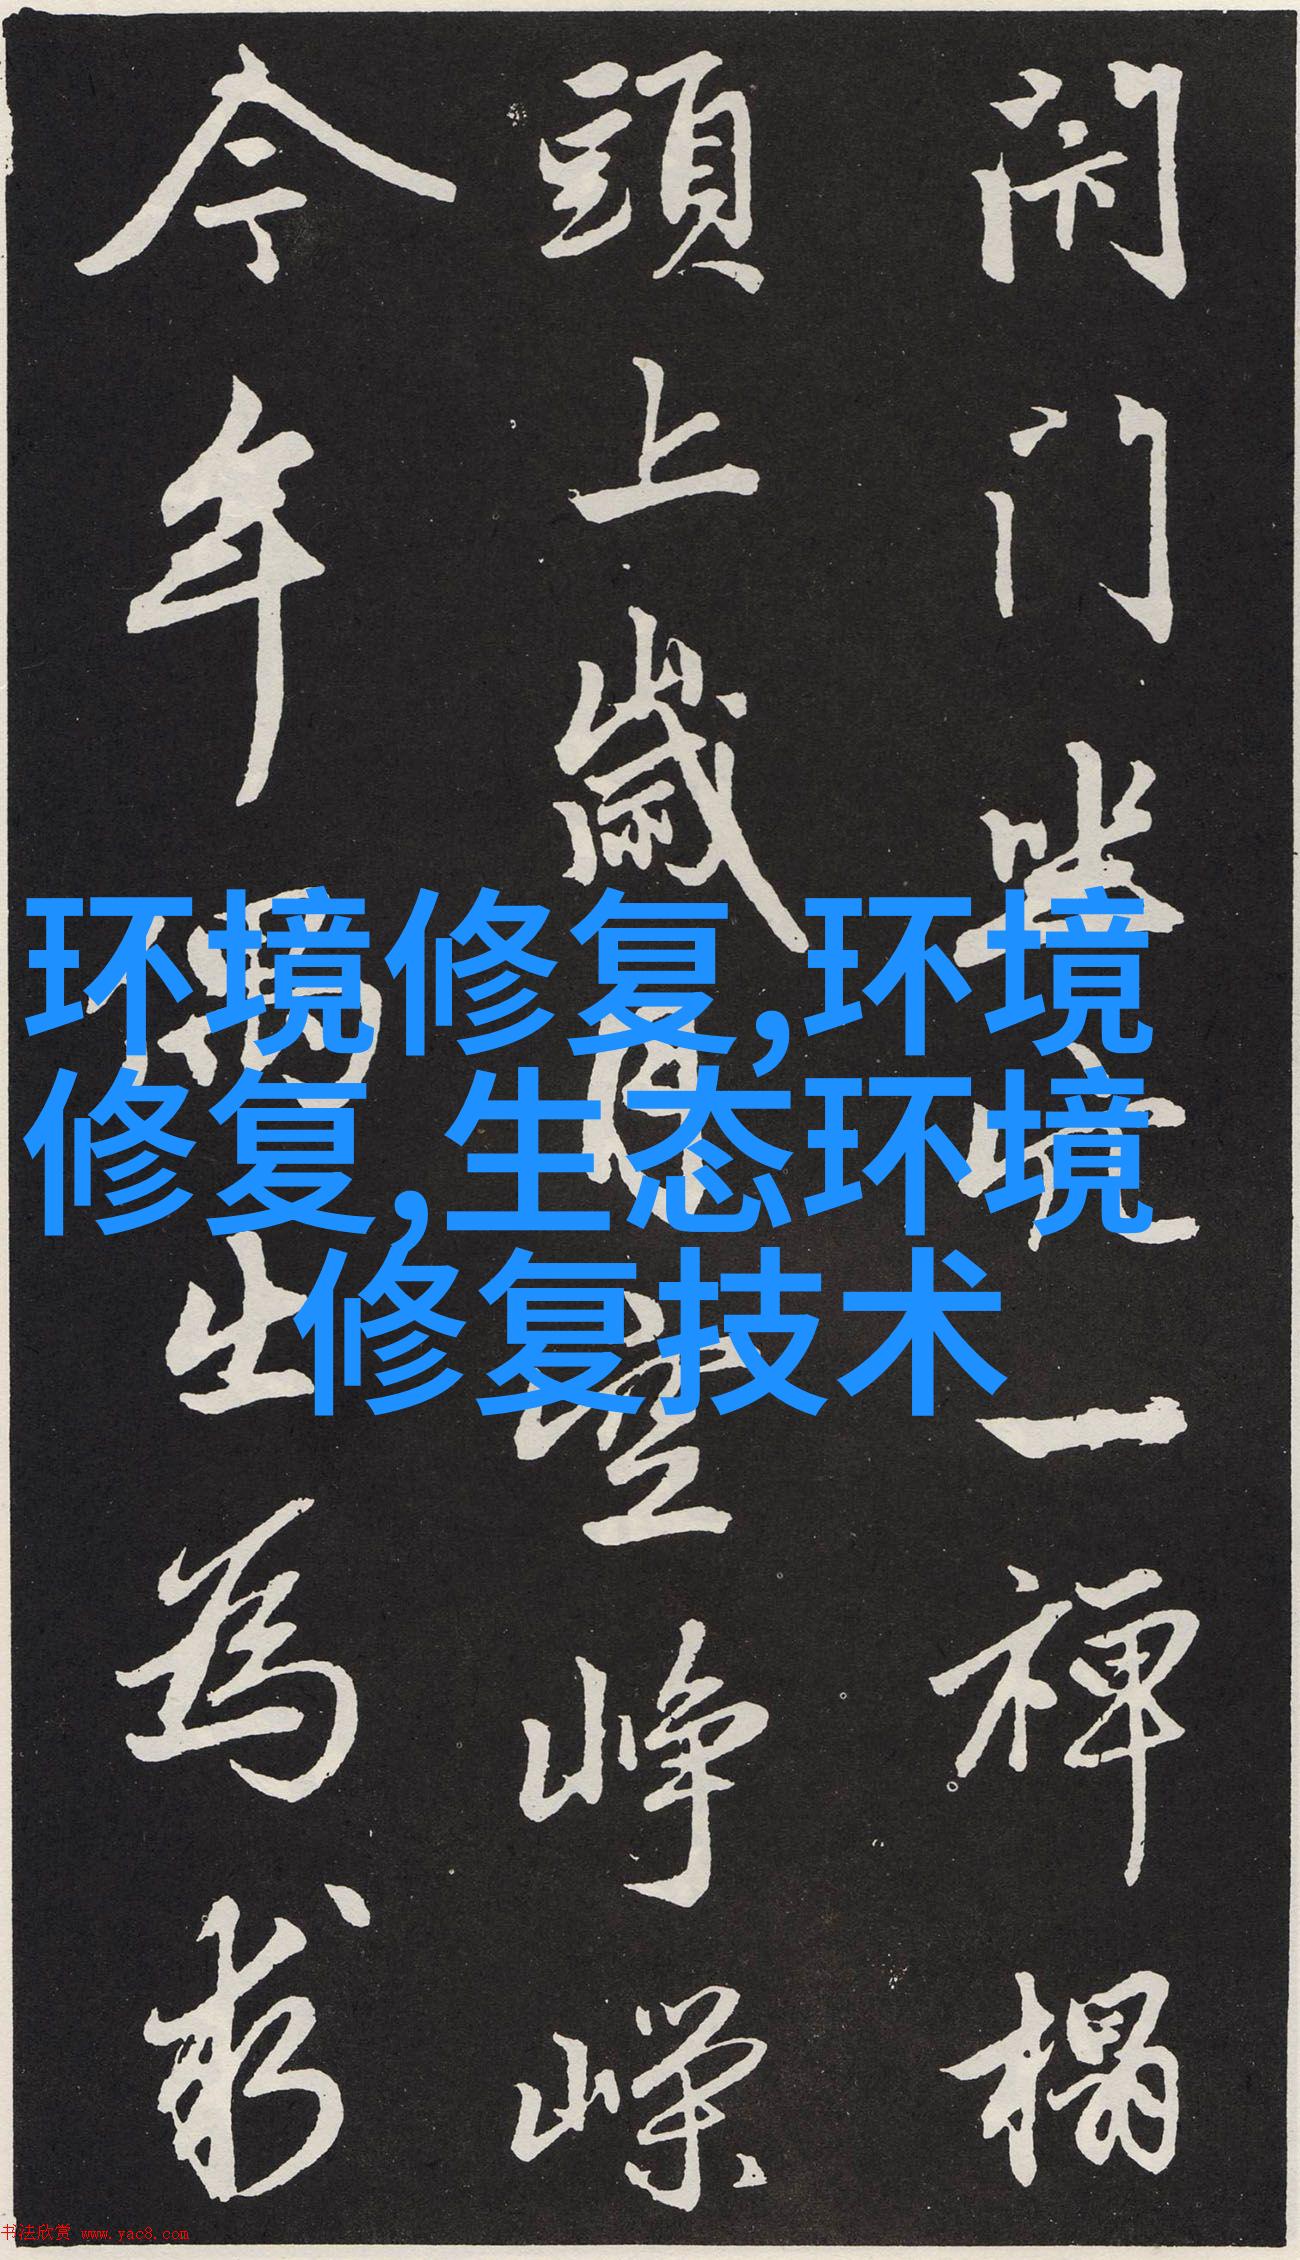 閇门坐穴一禅榻
頭上歲月空崢嶸
今年偶出為求
环境修复,环境
修复,生态环境
修复技术
书法欣赏 www.yac8.com